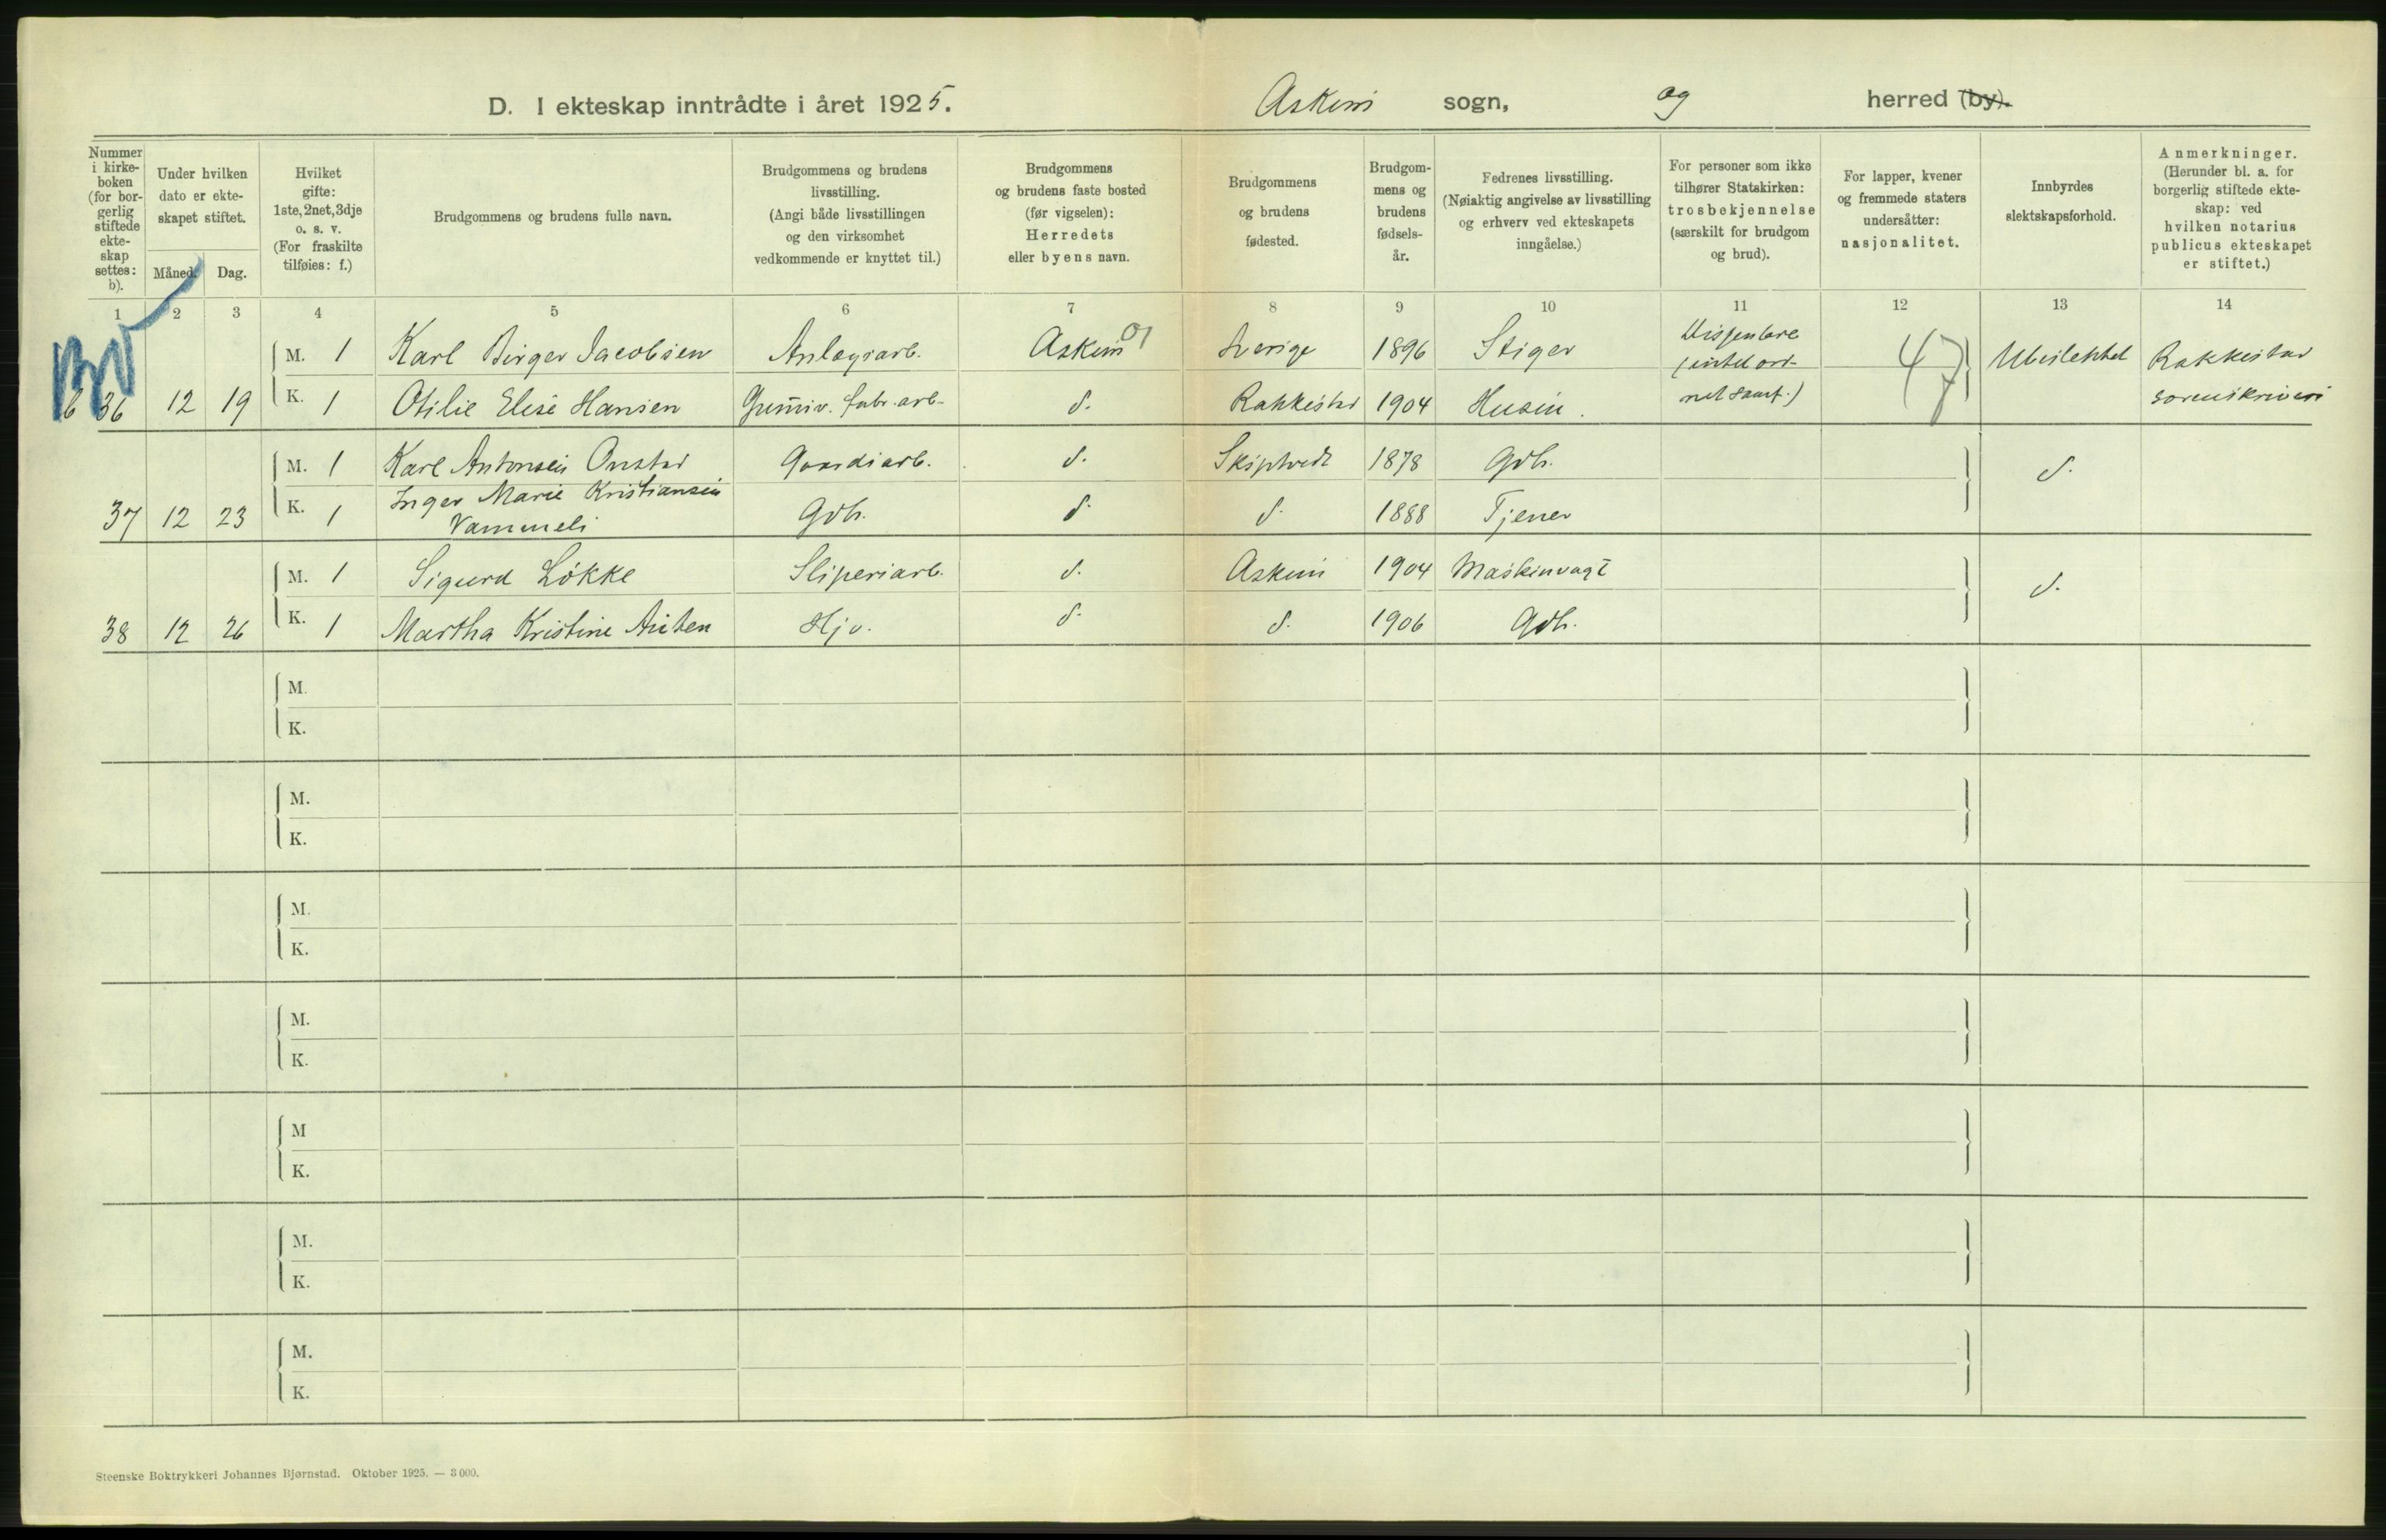 D. I ekteskap inntrådte i året 1925. Askim sogn, og herred (by).
Nummer i kirkeboken (for borgerlig stiftede ekteskap settes: b).
Under hvilken dato er ekteskapet stiftet.
Måned. Dag.
Hvilket gifte: 1ste, 2net, 3dje o. s. v. (For fraskilte tilføies: f.)
Brudgommens og brudens fulle navn.
Brudgommens og brudens livsstilling. (Angi både livsstillingen og den virksomhet vedkommende er knyttet til.)
Brudgommens og brudens faste bosted (før vigselen): Herredets eller byens navn.
Brudgommens og brudens fødested.
Brudgommens og brudens fødselsår.
Fedrenes livsstilling. (Nøiaktig angivelse av livsstilling og erhverv ved ekteskapets inngåelse.)
For personer som ikke tilhører Statskirken: trosbekjennelse (særskilt for brudgom og brud).
For lapper, kvener og fremmede staters undersåtter: nasjonalitet.
Innbyrdes slektskapsforhold.
Anmerkninger. (Herunder bl. a. for borgerlig stiftede ekteskap: ved hvilken notarius publicus ekteskapet er stiftet.)
1 2 3 4 5 6 7 8 9 10 11 12 13 14
M. 1 Karl Birger Jacobsen Anlegsarb. Askim 01 Sverige 1896 Stiger Dissentere 47 Ubeslektet Rakkestad
(intet ord-
b 36 12 19 K. 1 Otilie Elise Hansen Gumiv. fabr. arb. d. Rakkestad 1904 Husm. net samf.) sorenskriveri
M. 1 Karl Antonsen Onstad Gaardsarb. d. Skiptvedt 1878 Gdb. d.
37 12 23 K. 1 Inger Marie Kristiansen
Vammeli Gdb. d. d. 1888 Tjener
M. 1 Sigurd Løkke Sliperiarb. d. Askim 1904 Maskinvagt d.
38 12 26 K. 1 Martha Kristine Hjv. d. d. 1906 Gdb.
M.
K.
M.
K.
M.
K.
M.
K.
M
K.
M.
K.
M.
K.
Steenske Boktrykkeri Johannes Bjørnstad. Oktober 1925. — 3 000.